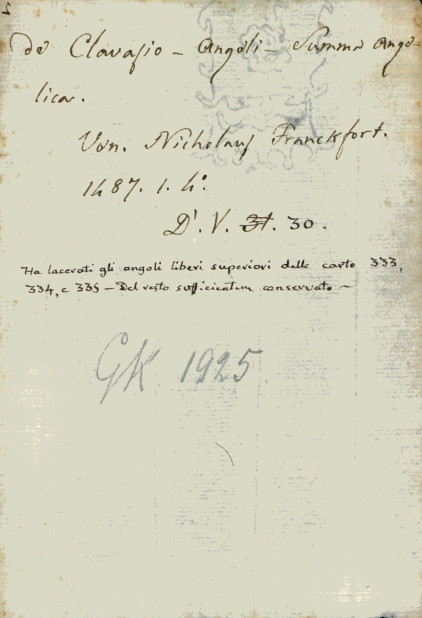 2
de Clavasio - Angeli - Summa Ange-
lica.
Ven. Nicholaus Franckfort.
1487. 1. 4°.
D'. V. 31. 30.
Ha lacerati gli angoli liberi superiori delle carte 333,
334, e 335 - Del resto sufficientem conservato -
GK 1925